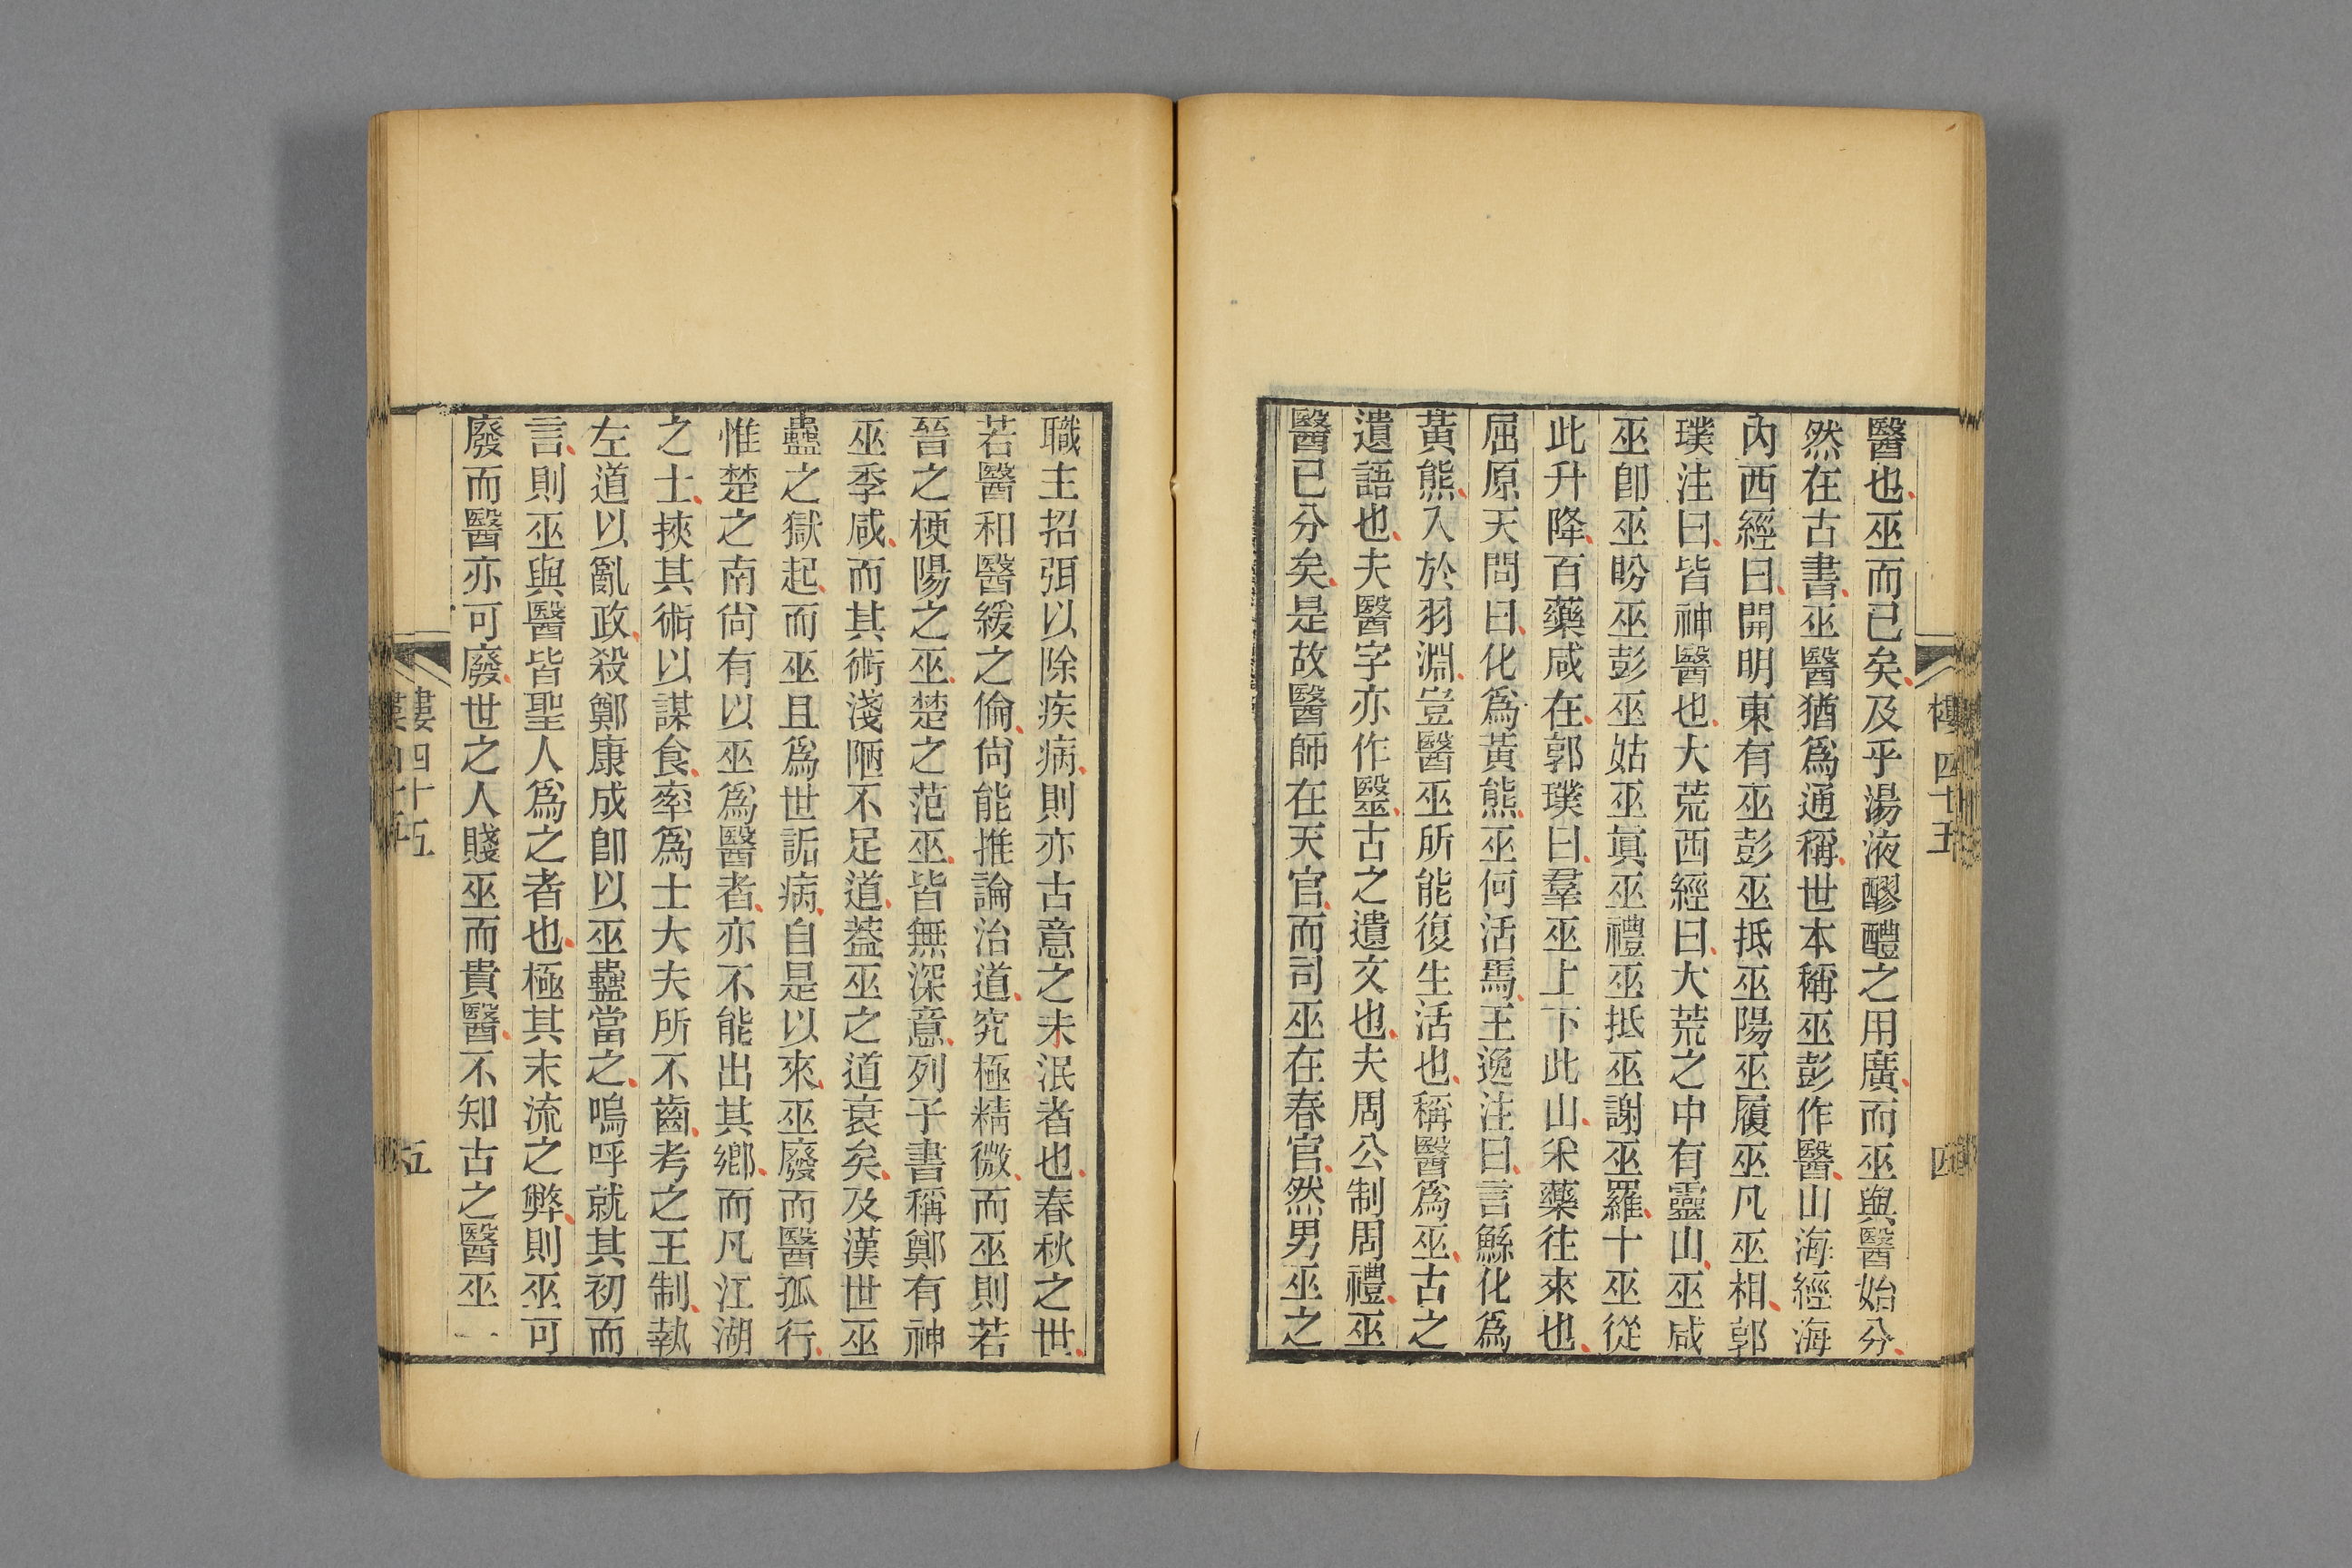 醫也巫而已矣及乎湯液醪醴之用廣而巫與醫始分
然在古書巫醫猶爲通稱世本稱巫彭作醫山海經海
內西經曰開明東有巫彭巫抵巫陽巫履巫凡巫相郭
璞注曰皆神醫也大荒西經曰大荒之中有靈山巫咸
巫卽巫盼巫彭巫姑巫眞巫禮巫抵巫謝巫羅十巫從
此升降百藥咸在郭璞曰羣巫上下此山采藥往來也
屈原天問曰化爲黃熊巫何活焉王逸注曰言鯀化爲
黃熊入於羽淵豈醫巫所能復生活也稱醫爲巫古之
遺語也夫醫字亦作毉古之遺文也夫周公制周禮巫
醫已分矣是故醫師在天官而司巫在春官然男巫之
樓四十五
四
職主招弭以除疾病則亦古意之未泯者也春秋之世
若醫和醫緩之倫尙能推論治道究極精微而巫則若
晉之梗陽之巫楚之范巫皆無深意列子書稱鄭有神
巫季咸而其術淺陋不足道葢巫之道衰矣及漢世巫
蠱之獄起而巫且爲世詬病自是以來巫廢而醫孤行
惟楚之南尙有以巫爲醫者亦不能出其鄕而凡江湖
之士挾其術以謀食率爲士大夫所不齒考之王制執
左道以亂政殺鄭康成卽以巫蠱當之嗚呼就其初而
言則巫與醫皆聖人爲之者也極其末流之弊則巫可
廢而醫亦可廢世之人賤巫而貴醫不知古之醫巫一
婁四十五
五